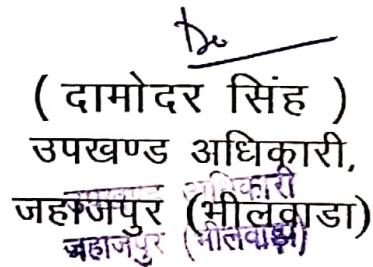 ( दामोदर सिंह )
उपखण्ड अधिकारी,
जहाजपुर (भीलवाडा)
अधिकारी
जहाजपुर (भीलवाड़ा)